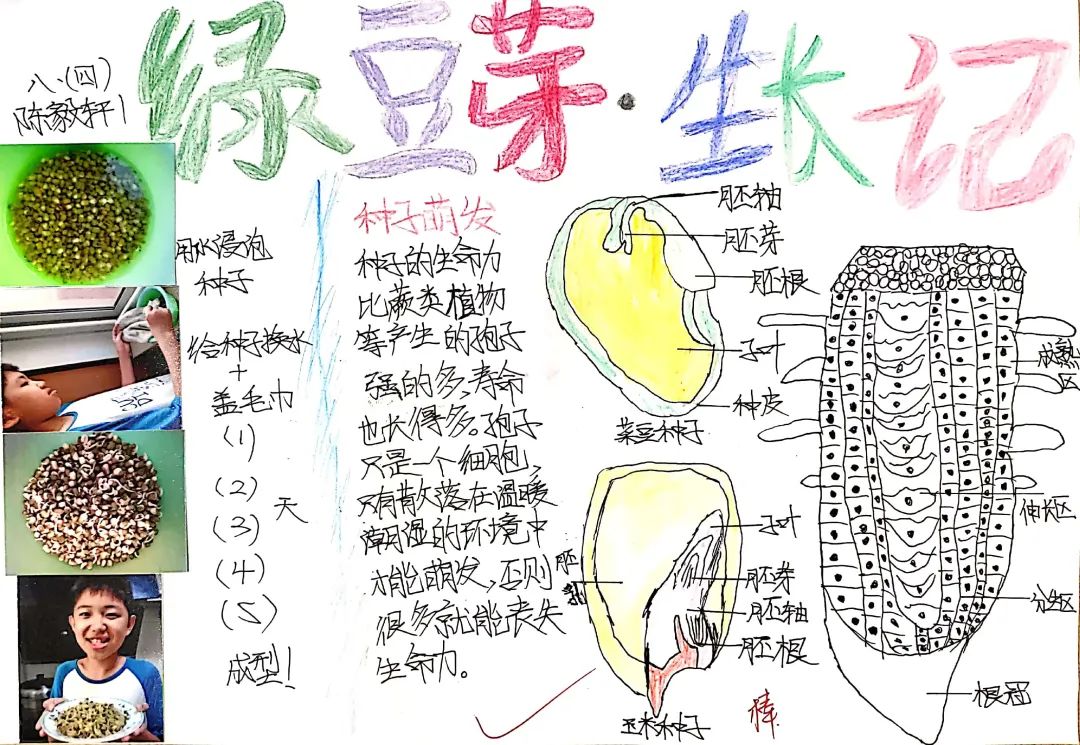 绿豆芽·生长记
八(四)
陈毅轩1
用水浸泡
种子
给种子换水
+
盖毛巾
(1)
(2)
(3)
天
(4)
(5)
成型!
种子萌发
种子的生命力
比蕨类植物
等产生的孢子
强的多,寿命
也长得多。孢子
只是一个细胞,
只有散落在温暖
潮湿的环境中
才能萌发,否则
很多就能丧失
生命力。
胚轴
胚芽
胚根
子叶
种皮
菜豆种子
胚乳
子叶
胚芽
胚轴
胚根
玉米种子
棒
成熟区
伸长区
分生区
根冠